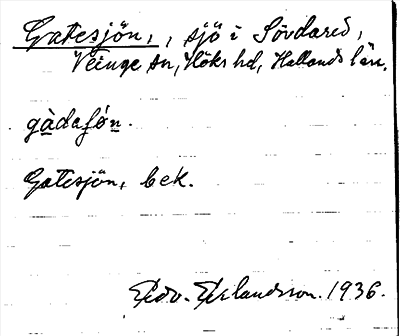 Gatesjön, , sjö i Sövdared,
Veinge sn, Höks hd, Hallands län.
gàdaʃö́n.
Gatesjön, bek.
Edv. Erlandsson. 1936.